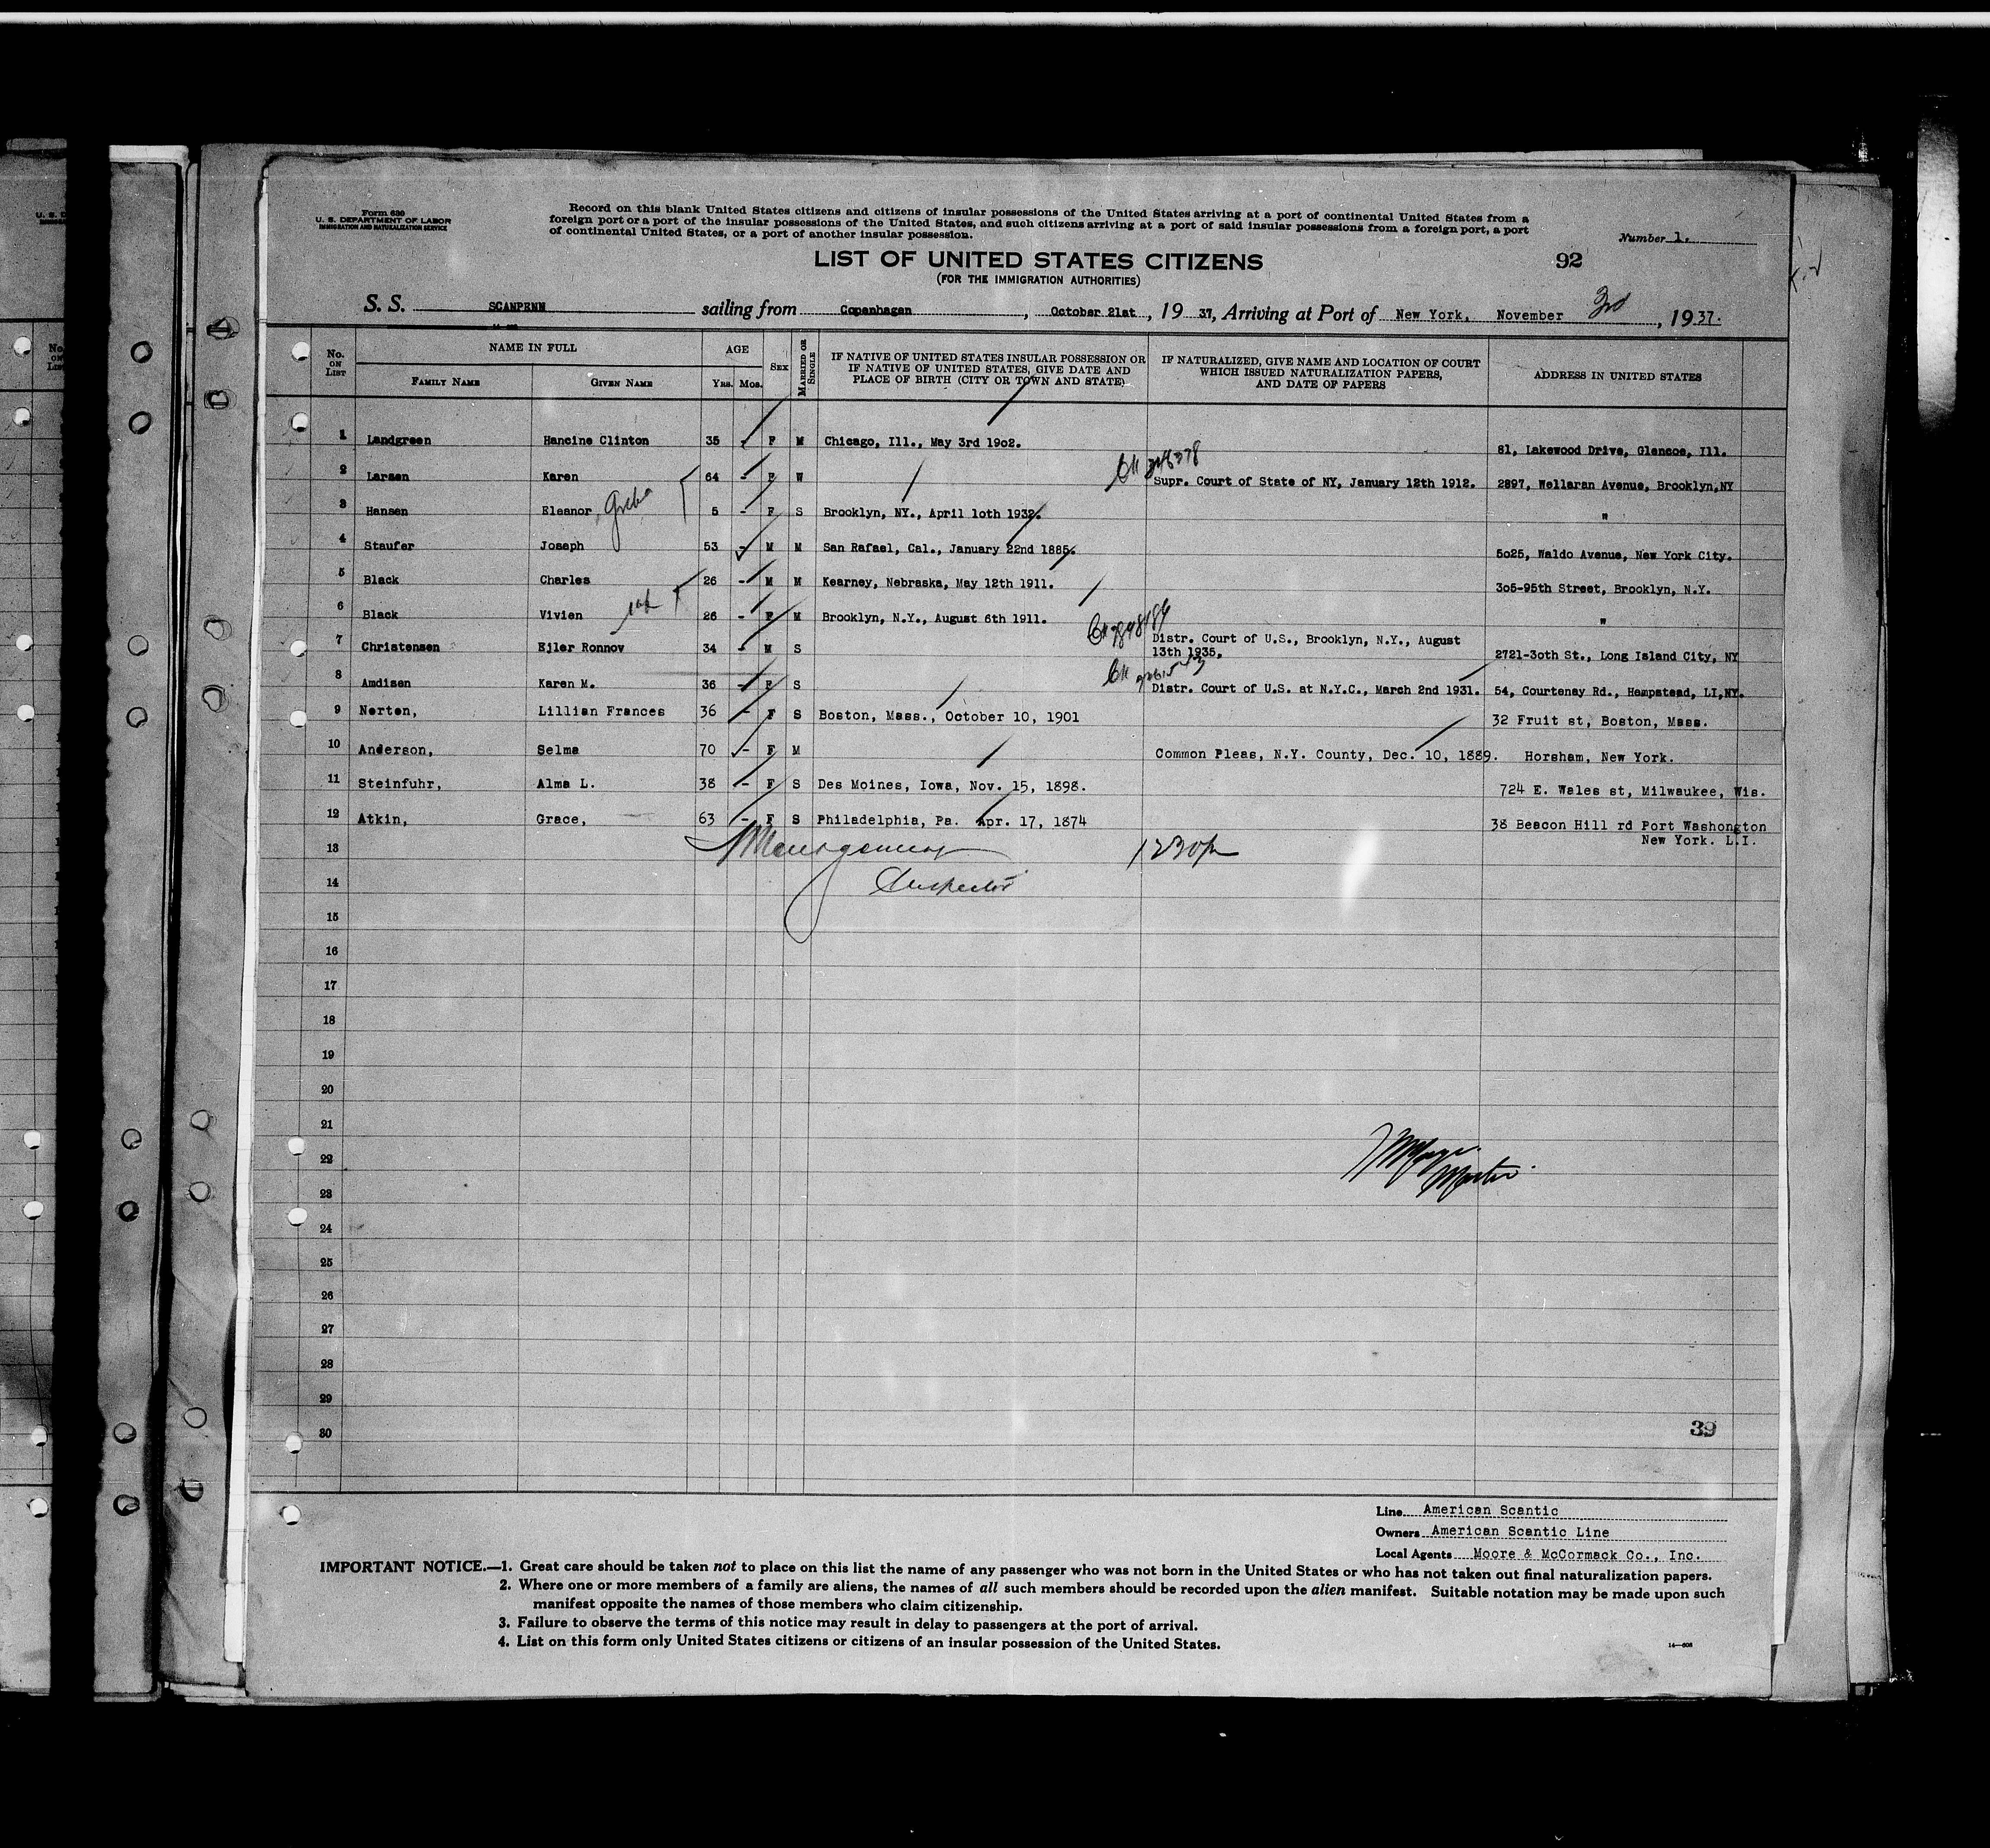 Form 630
U. S. DEPARTMENT OF LABOR
IMMIGRATION AND NATURALIZATION SERVICE
Record on this blank United States citizens and citizens of insular possessions of the United States arriving at a port of continental United States from a
foreign port or a port of the insular possessions of the United States, and such citizens arriving at a port of said insular possessions from a foreign port, a port
of continental United States, or a port of another insular possession.
Number 1.
LIST OF UNITED STATES CITIZENS
92
(FOR THE IMMIGRATION AUTHORITIES)
S. S. SCANPENN sailing from Copenhagen, October 21st, 19 37, Arriving at Port of New York, November 3rd, 19 37.
No. ON LIST
NAME IN FULL
FAMILY NAME
GIVEN NAME
AGE
Yrs. Mos.
SEX
MARRIED OR SINGLE
IF NATIVE OF UNITED STATES INSULAR POSSESSION OR
IF NATIVE OF UNITED STATES, GIVE DATE AND
PLACE OF BIRTH (CITY OR TOWN AND STATE)
IF NATURALIZED, GIVE NAME AND LOCATION OF COURT
WHICH ISSUED NATURALIZATION PAPERS,
AND DATE OF PAPERS
ADDRESS IN UNITED STATES
1 Landgreen Hancine Clinton 35 - F M Chicago, Ill., May 3rd 19o2. 81, Lakewood Drive, Glencoe, Ill.
2 Larsen Karen 64 - F W Supr. Court of State of NY, January 12th 1912. 2897, Wellaran Avenue, Brooklyn,NY
3 Hansen Eleanor 5 - F S Brooklyn, NY., April 1oth 1932. "
4 Staufer Joseph 53 - M M San Rafael, Cal., January 22nd 1885. 5o25, Waldo Avenue, New York City.
5 Black Charles 26 - M M Kearney, Nebraska, May 12th 1911. 3o5-95th Street, Brooklyn, N.Y.
6 Black Vivien 26 - F M Brooklyn, N.Y., August 6th 1911. "
7 Christensen Ejler Ronnov 34 - M S Distr. Court of U.S., Brooklyn, N.Y., August
13th 1935. 2721-3oth St., Long Island City, NY
8 Amdisen Karen M. 36 - F S Distr. Court of U.S. at N.Y.C., March 2nd 1931. 54, Courtenay Rd., Hempstead, LI,NY.
9 Norton, Lillian Frances 36 - F S Boston, Mass., October 10, 1901 32 Fruit st, Boston, Mass.
10 Anderson, Selma 70 - F M Common Pleas, N.Y. County, Dec. 10, 1889. Horsham, New York.
11 Steinfuhr, Alma L. 38 - F S Des Moines, Iowa, Nov. 15, 1898. 724 E. Wales st, Milwaukee, Wis.
12 Atkin, Grace, 63 - F S Philadelphia, Pa. Apr. 17, 1874 38 Beacon Hill rd Port Washongton
New York. L.I.
13 1230p
14 Inspector
15
16
17
18
19
20
21
22
Master
23
24
25
26
27
28
29
30
39
Line American Scantic
Owners American Scantic Line
Local Agents Moore & McCormack Co., Inc.
IMPORTANT NOTICE.—1. Great care should be taken not to place on this list the name of any passenger who was not born in the United States or who has not taken out final naturalization papers.
2. Where one or more members of a family are aliens, the names of all such members should be recorded upon the alien manifest. Suitable notation may be made upon such
manifest opposite the names of those members who claim citizenship.
3. Failure to observe the terms of this notice may result in delay to passengers at the port of arrival.
4. List on this form only United States citizens or citizens of an insular possession of the United States.
14—608